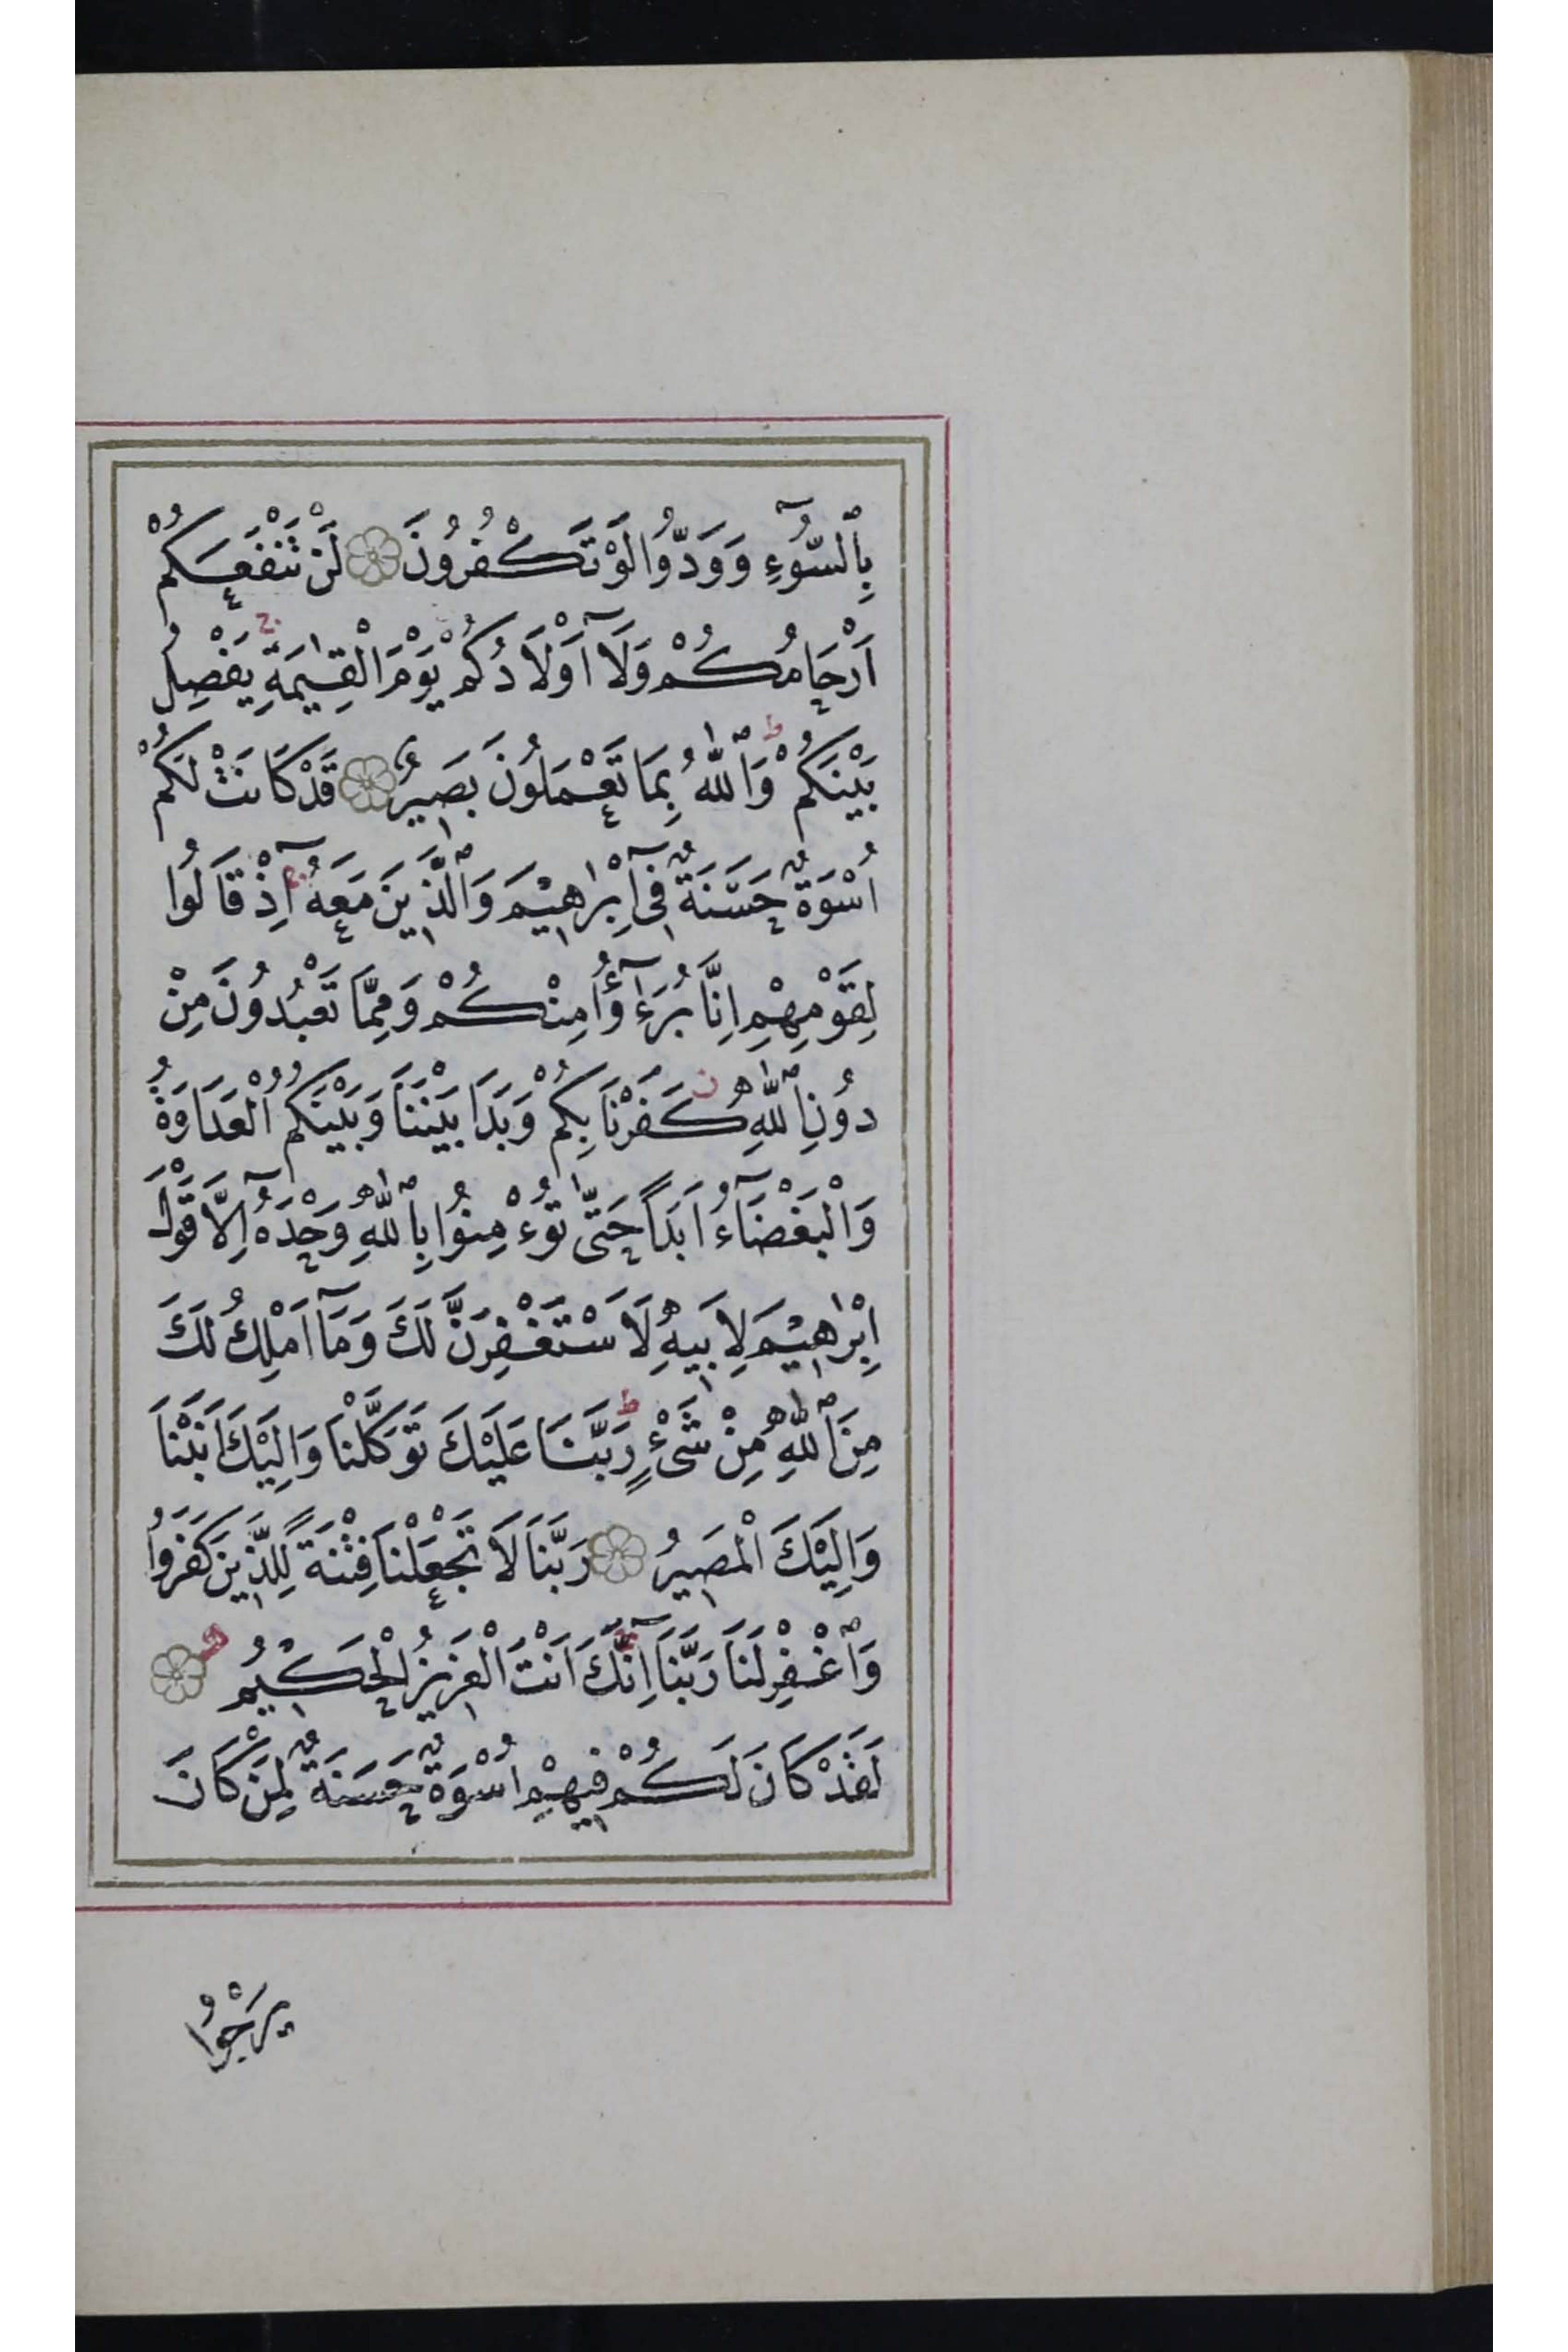 بِٱلسُّوٓءِ وَوَدُّوا لَوْ تَكْفُرُونَ لَنْ تَنْفَعَكُمْ
اَرْحَامُكُمْ وَلَآ اَوْلَادُكُمْ يَوْمَ الْقِيٰمَةِ ۚ يَفْصِلُ
بَيْنَكُمْ ۜ وَٱللّٰهُ بِمَا تَعْمَلُونَ بَصِيرٌ قَدْ كَانَتْ لَكُمْ
اُسْوَةٌ حَسَنَةٌ فِىٓ اِبْرٰهِيْمَ وَٱلَّذِينَ مَعَهُ ۚ اِذْ قَالُوا
لِقَوْمِهِمْ اِنَّا بُرَءٰٓؤُا مِنْكُمْ وَمِمَّا تَعْبُدُونَ مِنْ
دُونِ ٱللّٰهِ كَفَرْنَا بِكُمْ وَبَدَا بَيْنَنَا وَبَيْنَكُمُ الْعَدَاوَةُ
وَالْبَغْضَآءُ اَبَدًا حَتّٰى تُوءْمِنُوا بِٱللّٰهِ وَحْدَهُٓ اِلَّا قَوْلَ
اِبْرٰهِيْمَ لِاَبِيهِ لَاَسْتَغْفِرَنَّ لَكَ وَمَآ اَمْلِكُ لَكَ
مِنَ ٱللّٰهِ مِنْ شَىْءٍ ط رَبَّنَا عَلَيْكَ تَوَكَّلْنَا وَاِلَيْكَ اَنَبْنَا
وَاِلَيْكَ الْمَصِيرُ رَبَّنَا لَا تَجْعَلْنَا فِتْنَةً لِلَّذِينَ كَفَرُوا
وَٱغْفِرْ لَنَا رَبَّنَا ۚ اِنَّكَ اَنْتَ الْعَزِيزُ الْحَكِيْمُ
لَقَدْ كَانَ لَكُمْ فِيهِمْ اُسْوَةٌ حَسَنَةٌ لِمَنْ كَانَ
يَرْجُوا